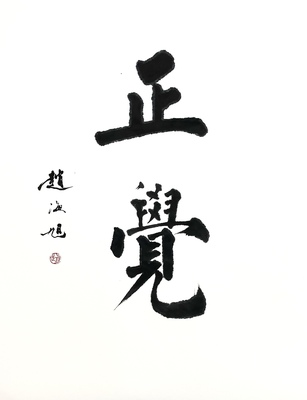 正覺
趙海旭